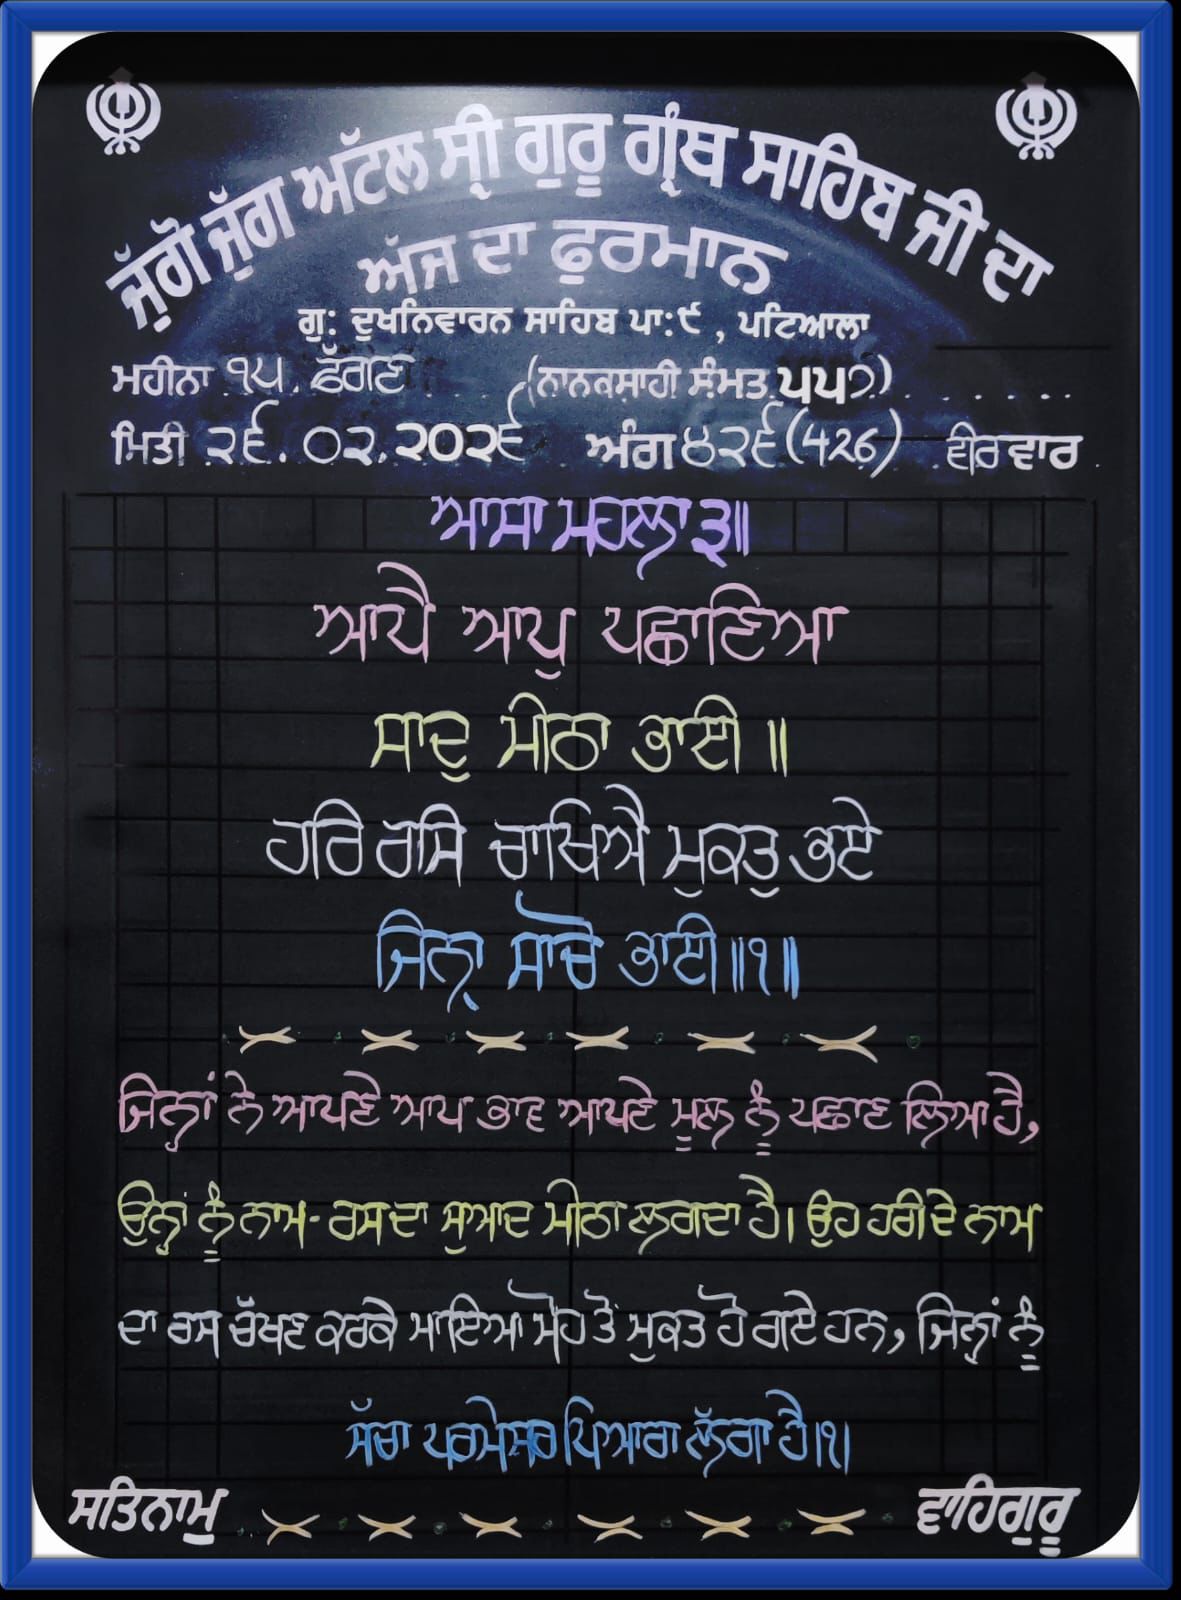 ਜੁੱਗੋ ਜੁੱਗ ਅਟੱਲ ਸ੍ਰੀ ਗੁਰੂ ਗ੍ਰੰਥ ਸਾਹਿਬ ਜੀ ਦਾ
ਅੱਜ ਦਾ ਫੁਰਮਾਨ
ਗੁ: ਦੁਖਨਿਵਾਰਨ ਸਾਹਿਬ ਪਾ:੯, ਪਟਿਆਲਾ
ਮਹੀਨਾ ੧੫. ਫੱਗਣ (ਨਾਨਕਸ਼ਾਹੀ ਸੰਮਤ ੫੫੭)
ਮਿਤੀ ੨੬.੦੨.੨੦੨੬ ਅੰਗ ੪੨੬ (426) ਵੀਰਵਾਰ
ਆਸਾ ਮਹਲਾ ੩॥
ਆਪੈ ਆਪੁ ਪਛਾਣਿਆ
ਸਾਦੁ ਮੀਠਾ ਭਾਈ ॥
ਹਰਿ ਰਸਿ ਚਾਖਿਐ ਮੁਕਤੁ ਭਏ
ਜਿਨ੍ਹਾ ਸਾਚੋ ਭਾਈ॥੧॥
ਜਿਨ੍ਹਾਂ ਨੇ ਆਪਣੇ ਆਪ ਭਾਵ ਆਪਣੇ ਮੂਲ ਨੂੰ ਪਛਾਣ ਲਿਆ ਹੈ,
ਉਨ੍ਹਾਂ ਨੂੰ ਨਾਮ-ਰਸ ਦਾ ਸੁਆਦ ਮੀਠਾ ਲਗਦਾ ਹੈ। ਉਹ ਹਰੀ ਦੇ ਨਾਮ
ਦਾ ਰਸ ਚੱਖਣ ਕਰਕੇ ਮਾਇਆ ਮੋਹ ਤੋਂ ਮੁਕਤ ਹੋ ਗਏ ਹਨ, ਜਿਨ੍ਹਾਂ ਨੂੰ
ਸੱਚਾ ਪਰਮੇਸਰ ਪਿਆਰਾ ਲੱਗਾ ਹੈ।੧।
ਸਤਿਨਾਮੁ ਵਾਹਿਗੁਰੂ